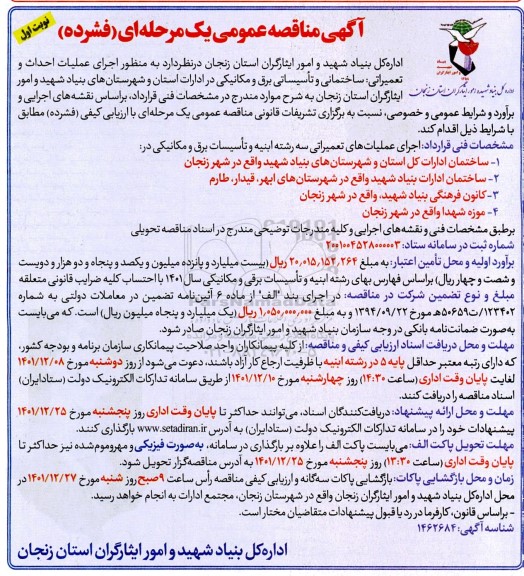 نوبت اول
آگهی مناقصه عمومی یک مرحله‌ای (فشرده)
اداره کل بنیاد شهید و امور ایثارگران استان زنجان
اداره‌کل بنیاد شهید و امور ایثارگران استان زنجان درنظردارد به منظور اجرای عملیات احداث و
تعمیراتی: ساختمانی و تأسیساتی برق و مکانیکی در ادارات استان و شهرستان‌های بنیاد شهید و امور
ایثارگران استان زنجان به شرح موارد مندرج در مشخصات فنی قرارداد، براساس نقشه‌های اجرایی و
برآورد و شرایط عمومی و خصوصی، نسبت به برگزاری تشریفات قانونی مناقصه عمومی یک مرحله‌ای با ارزیابی کیفی (فشرده) مطابق
با شرایط ذیل اقدام کند.
مشخصات فنی قرارداد: اجرای عملیات‌های تعمیراتی سه رشته ابنیه و تأسیسات برق و مکانیکی در:
۱- ساختمان ادارات کل استان و شهرستان‌های بنیاد شهید واقع در شهر زنجان
۲- ساختمان ادارات بنیاد شهید واقع در شهرستان‌های ابهر، قیدار، طارم
۳- کانون فرهنگی بنیاد شهید، واقع در شهر زنجان
۴- موزه شهدا واقع در شهر زنجان
برطبق مشخصات فنی و نقشه‌های اجرایی و کلیه مندرجات توضیحی مندرج در اسناد مناقصه تحویلی
شماره ثبت در سامانه ستاد: ۲۰۰۱۰۰۴۵۲۸۰۰۰۰۰۳
برآورد اولیه و محل تأمین اعتبار: به مبلغ ۲۰,۰۱۵,۱۵۲,۲۶۴ ریال (بیست میلیارد و پانزده میلیون و یکصد و پنجاه و دو هزار و دویست
و شصت و چهار ریال) براساس فهارس بهای رشته ابنیه و تأسیسات برقی و مکانیکی سال ۱۴۰۱ با احتساب کلیه ضرایب قانونی متعلقه
مبلغ و نوع تضمین شرکت در مناقصه: در اجرای بند "الف" از ماده ۶ آئین‌نامه تضمین در معاملات دولتی به شماره
۱۲۳۴۰۲/ت۵۰۶۵۹ه‍ مورخ ۱۳۹۴/۰۹/۲۲ و به مبلغ ۱,۰۵۰,۰۰۰,۰۰۰ ریال (یک میلیارد و پنجاه میلیون ریال) است. که می‌بایست
به‌صورت ضمانت‌نامه بانکی در وجه سازمان بنیاد شهید و امور ایثارگران زنجان صادر شود.
مهلت و محل دریافت اسناد ارزیابی کیفی و مناقصه: از کلیه پیمانکاران واجد صلاحیت پیمانکاری سازمان برنامه و بودجه کشور،
که دارای رتبه معتبر حداقل پایه ۵ در رشته ابنیه با ظرفیت ارجاع کار آزاد باشند، دعوت می‌شود از روز دوشنبه مورخ ۱۴۰۱/۱۲/۰۸
لغایت پایان وقت اداری (ساعت ۱۴:۳۰) روز چهارشنبه مورخ ۱۴۰۱/۱۲/۱۰ از طریق سامانه تدارکات الکترونیک دولت (ستادایران)
اسناد مناقصه را دریافت کنند.
مهلت و محل ارائه پیشنهاد: دریافت‌کنندگان اسناد، می‌توانند حداکثر تا پایان وقت اداری روز پنجشنبه مورخ ۱۴۰۱/۱۲/۲۵
پیشنهادات خود را در سامانه تدارکات الکترونیک دولت (ستادایران) به آدرس www.setadiran.ir بارگذاری کنند.
مهلت تحویل پاکت الف: می‌بایست پاکت الف را علاوه بر بارگذاری در سامانه، به‌صورت فیزیکی و مهروموم‌شده نیز حداکثر تا
پایان وقت اداری (ساعت ۱۳:۳۰) روز پنجشنبه مورخ ۱۴۰۱/۱۲/۲۵ به آدرس مناقصه‌گزار تحویل شود.
زمان و محل بازگشایی پاکات: بازگشایی پاکات سه‌گانه و ارزیابی کیفی مناقصه رأس ساعت ۹ صبح روز شنبه مورخ ۱۴۰۱/۱۲/۲۷ در
محل اداره‌کل بنیاد شهید و امور ایثارگران زنجان واقع در شهرستان زنجان، مجتمع ادارات به انجام خواهد رسید.
- براساس قانون، کارفرما در رد یا قبول پیشنهادات متقاضیان مختار است.
شناسه آگهی: ۱۴۶۲۶۸۴
اداره‌کل بنیاد شهید و امور ایثارگران استان زنجان